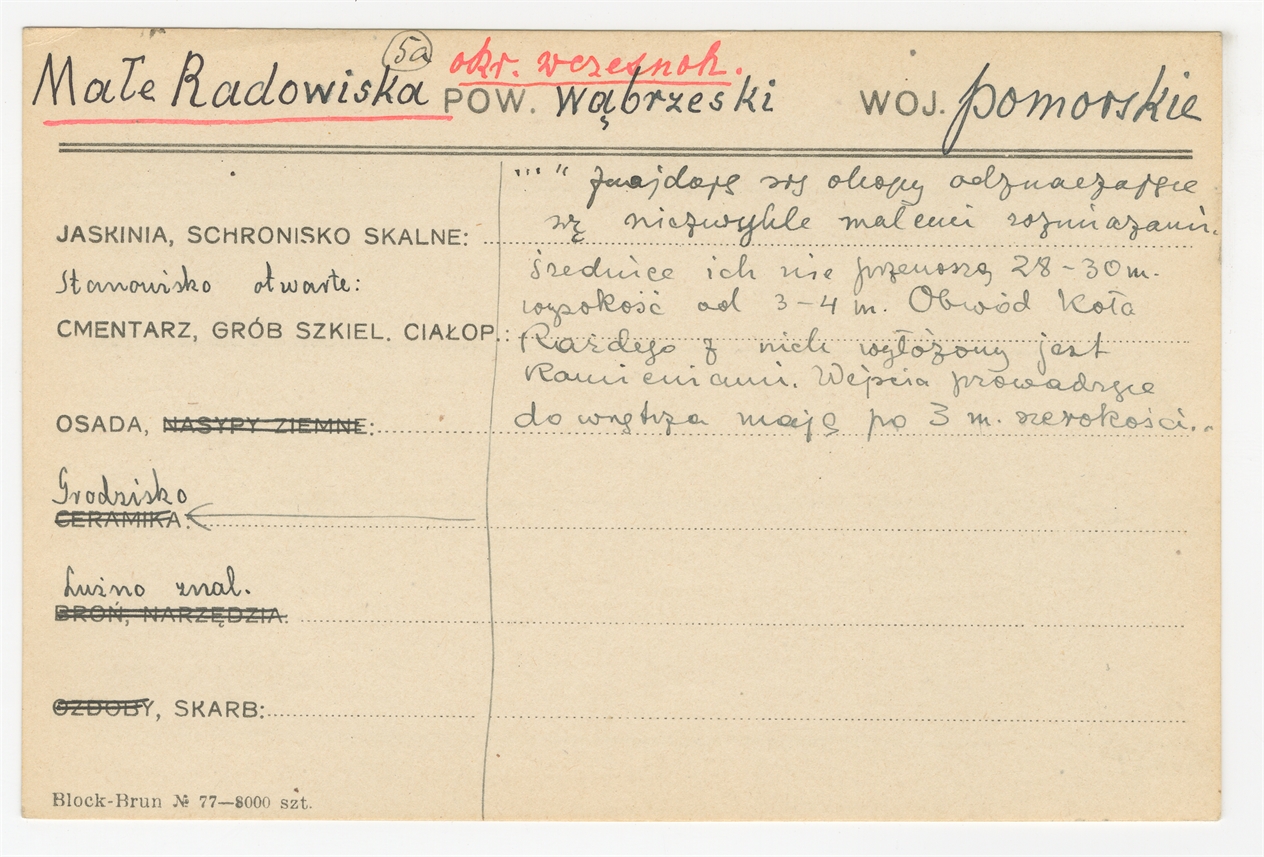 5a okr. wczesnoh.
Małe Radowiska POW. Wąbrzeski WOJ. pomorskie
"" " znajdają się okopy odznaczające
się niezwykle małemi rozmiarami.
JASKINIA, SCHRONISKO SKALNE:
średnice ich nie przenoszą 28-30 m.
Stanowisko otwarte:
wysokość od 3-4 m. Obwód koła
CMENTARZ, GRÓB SZKIEL. CIAŁOP.:
Każdego z nich wyłożony jest
Kamieniami. Wejścia prowadzące
OSADA, NASYPY ZIEMNE:
do wnętrza mają po 3 m. szerokości..
Grodzisko
CERAMIKA:
Luźno znal.
BROŃ, NARZĘDZIA:
OZDOBY, SKARB:
Block-Brun № 77—8000 szt.